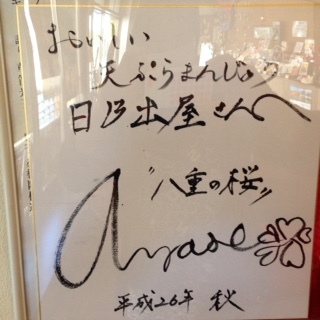 おいしい
天ぷらまんじゅう
日乃出屋さんへ
"八重の桜"
Ayase
平成26年 秋